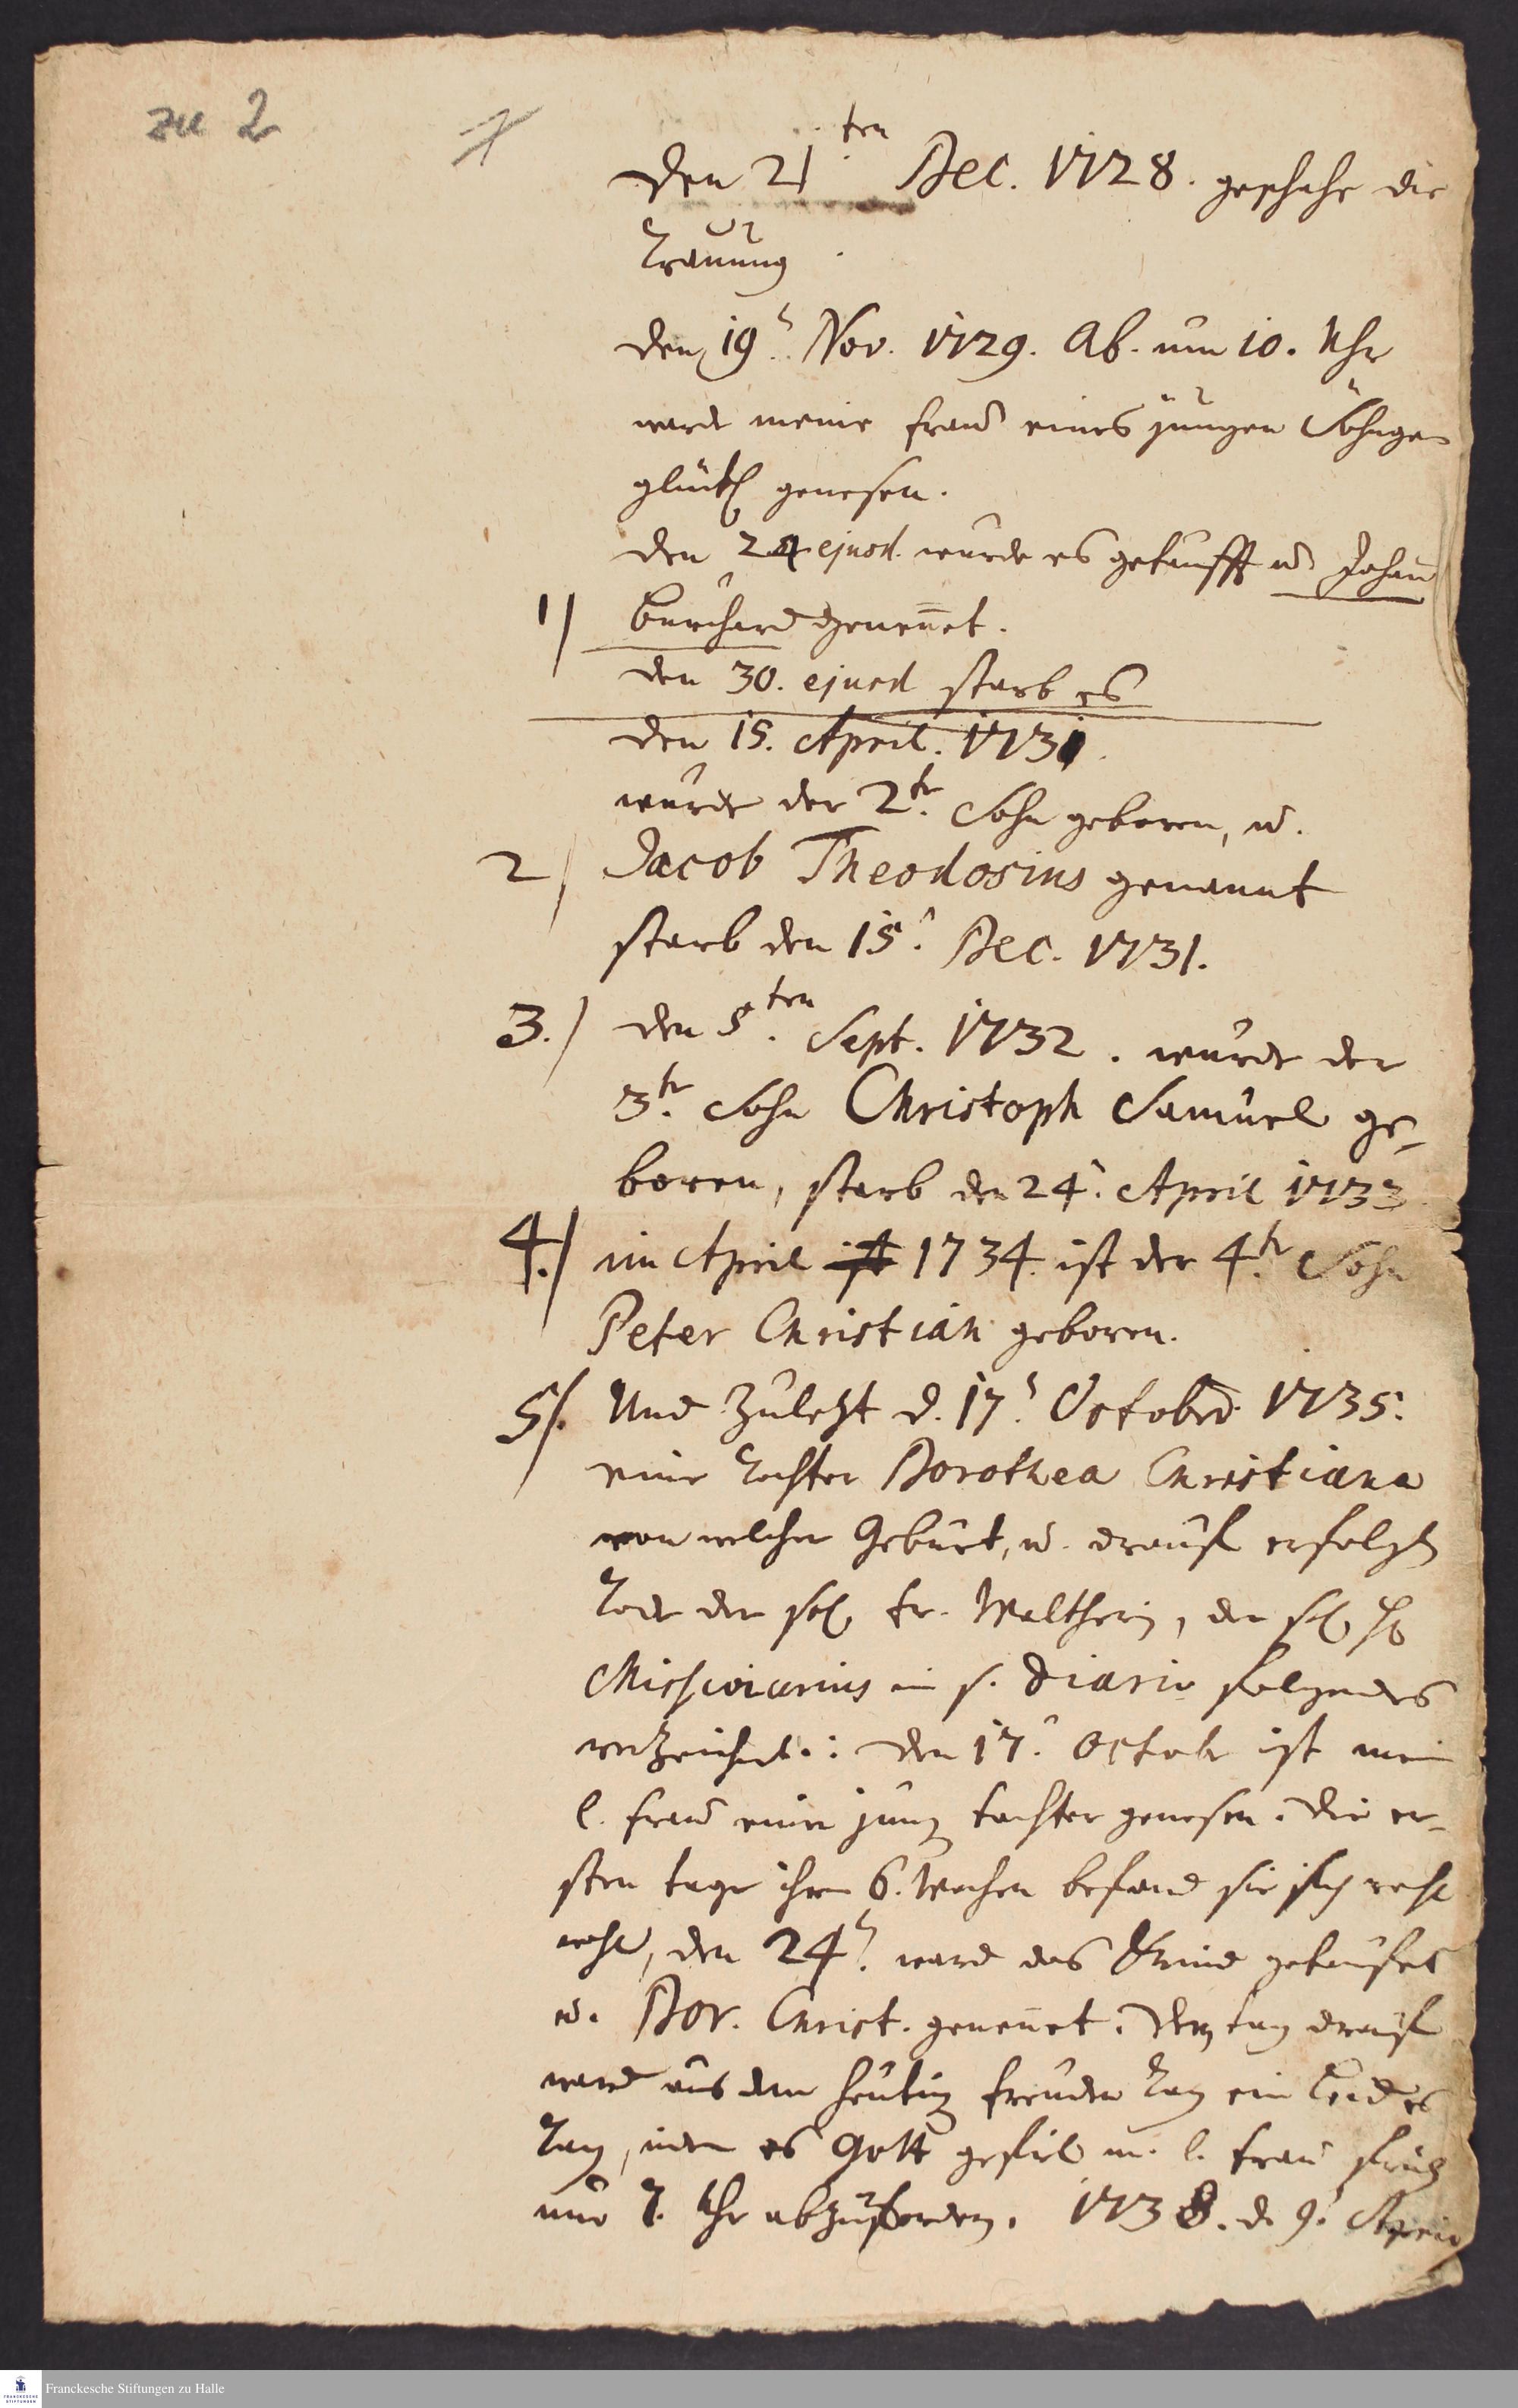 zu 2
1
Den 21ten Dec. 1728. geschahe die
Trauung
den 19t. Nov. 1729. Ab. um 10. Uhr
ward meine Frau eines jungen Söhngen
glückl genesen.
den 24 ejusd. wurde es getaufft u. Johan̄
1) Burchard genen̄et.
den 30. ejusd starb es
den 15. April. 1731.
wurde der 2tr. Sohn geboren, u.
2) Jacob Theodosius genannt
starb den 15t. Dec. 1731.
3.) den 5ten. Sept. 1732. wurde der
3tr. Sohn Christoph Samuel ge-
boren, starb den 24t. April 1733
4.) im April ist 1734. ist der 4tr. Sohn
Peter Christian geboren.
5). Und zuletzt d. 17t. Octobr. 1735.
eine Tochter Dorothea Christiana
von welcher Geburt, u. drauf erfolgten
Tode der sel. Fr. Waltherin, der sel. H.
Missionarius in s. Diario folgendes
verzeichnet.: den 17t. Octobr ist meine
l. Frau einer jung Tochter genesen. Die er-
sten Tage ihrer 6. Wochen befand sie sich recht
wohl, den 24t. ward das Kind getaufet
u. Dor. Christ. genen̄et. Den Tag drauf
ward aus dem heutig Freuden Tag ein Leides
Tag, indem es Gott gefiel m. l. Frau früh
um 7. Uhr abzufordern. 1738. d. 9t. April
Franckesche Stiftungen zu Halle